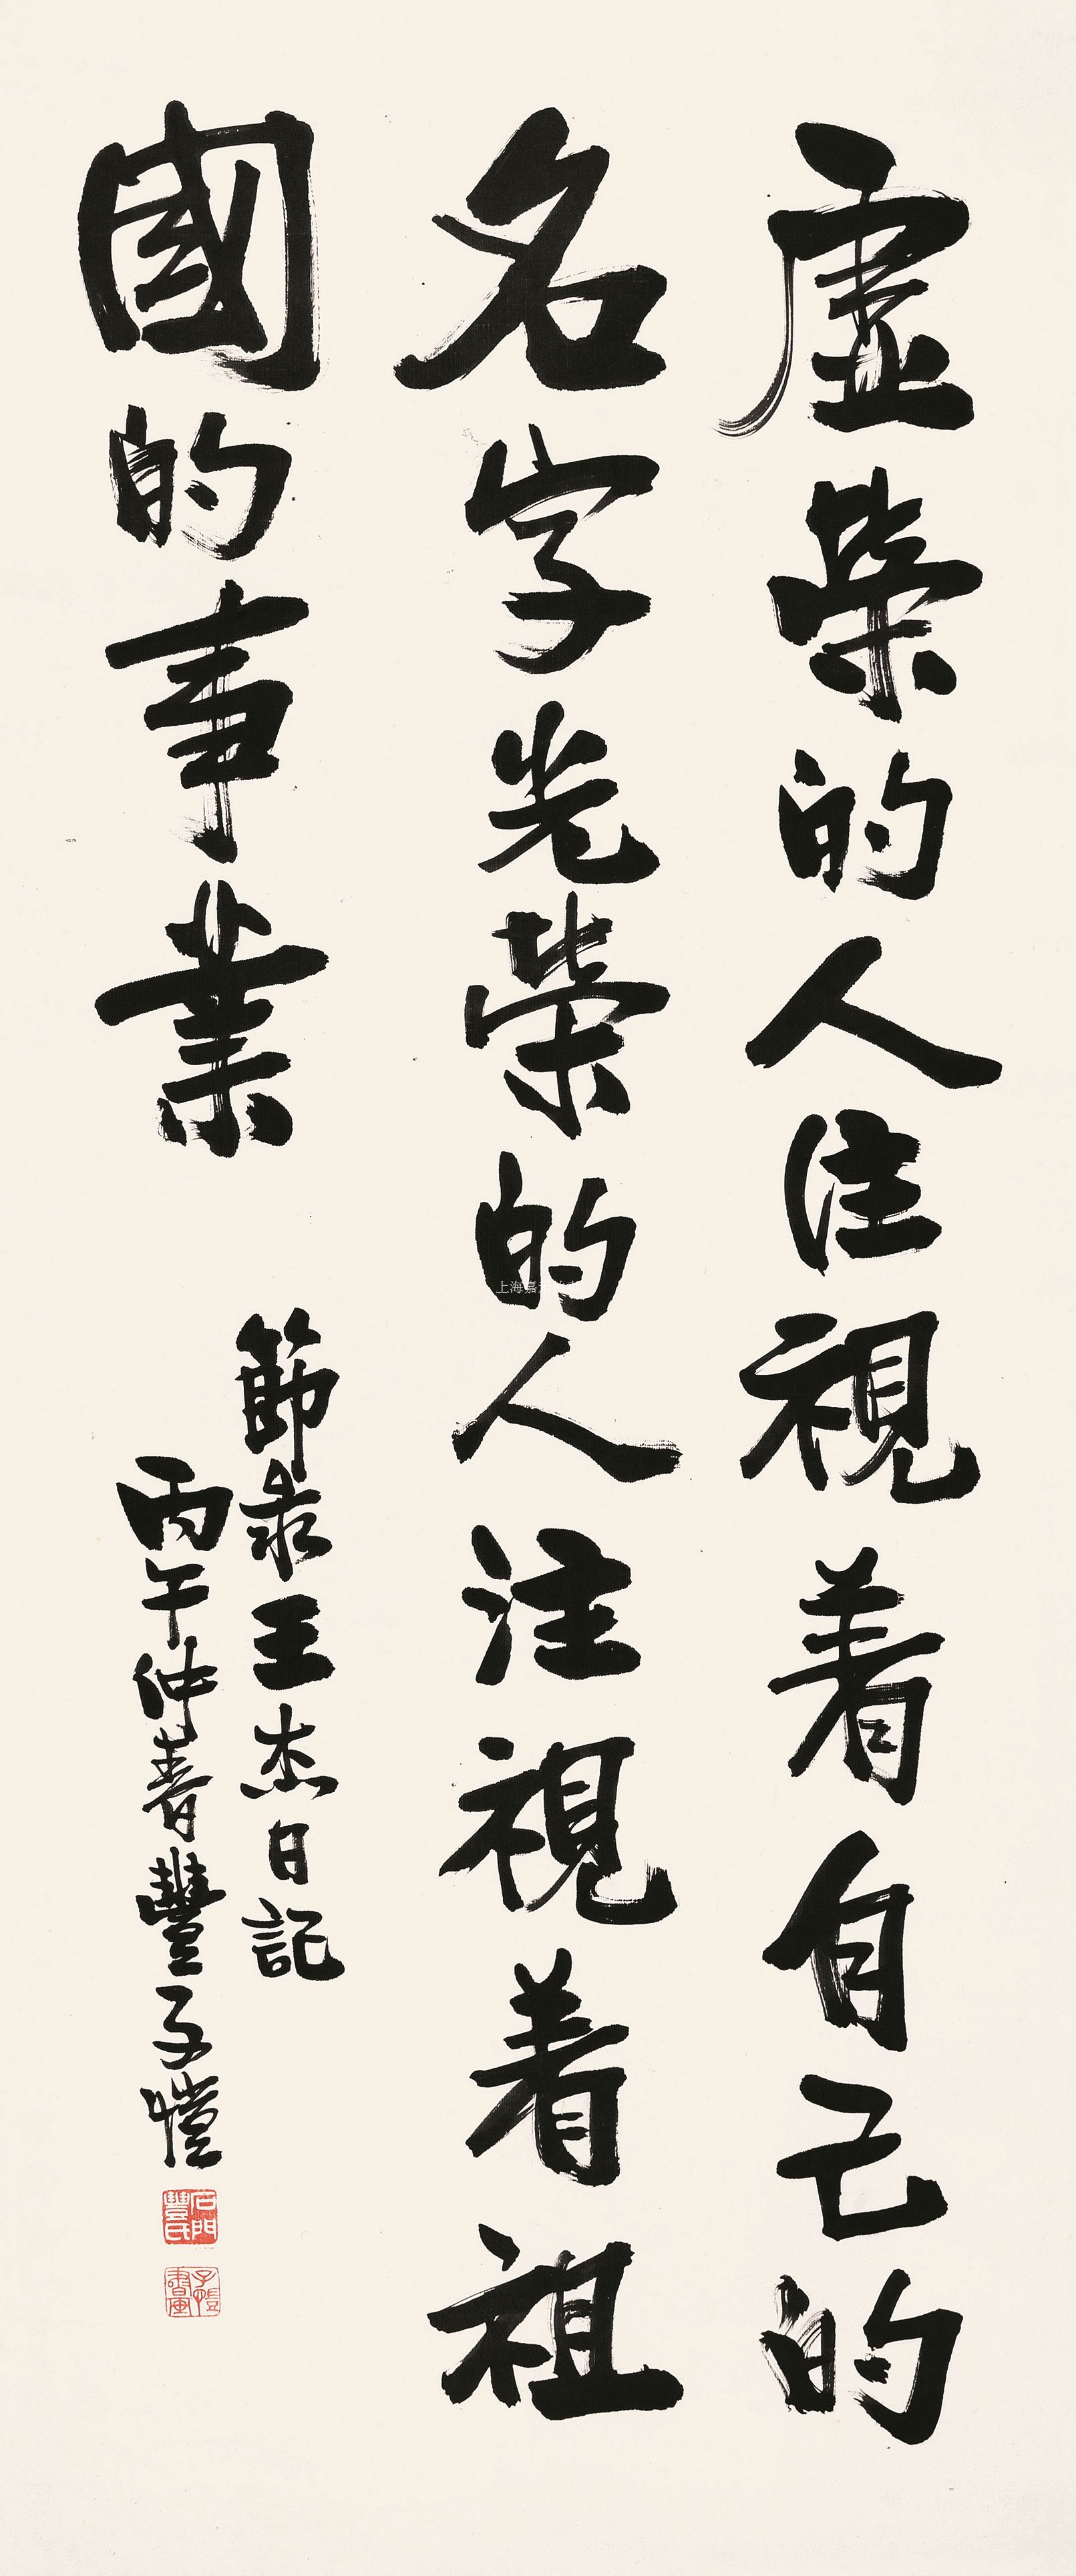 虛荣的人注視着自己的
名字光榮的人注視着祖
國的事業
節录王杰日記
丙午仲春豐子愷
石門豐氏
子愷書畫
上海嘉